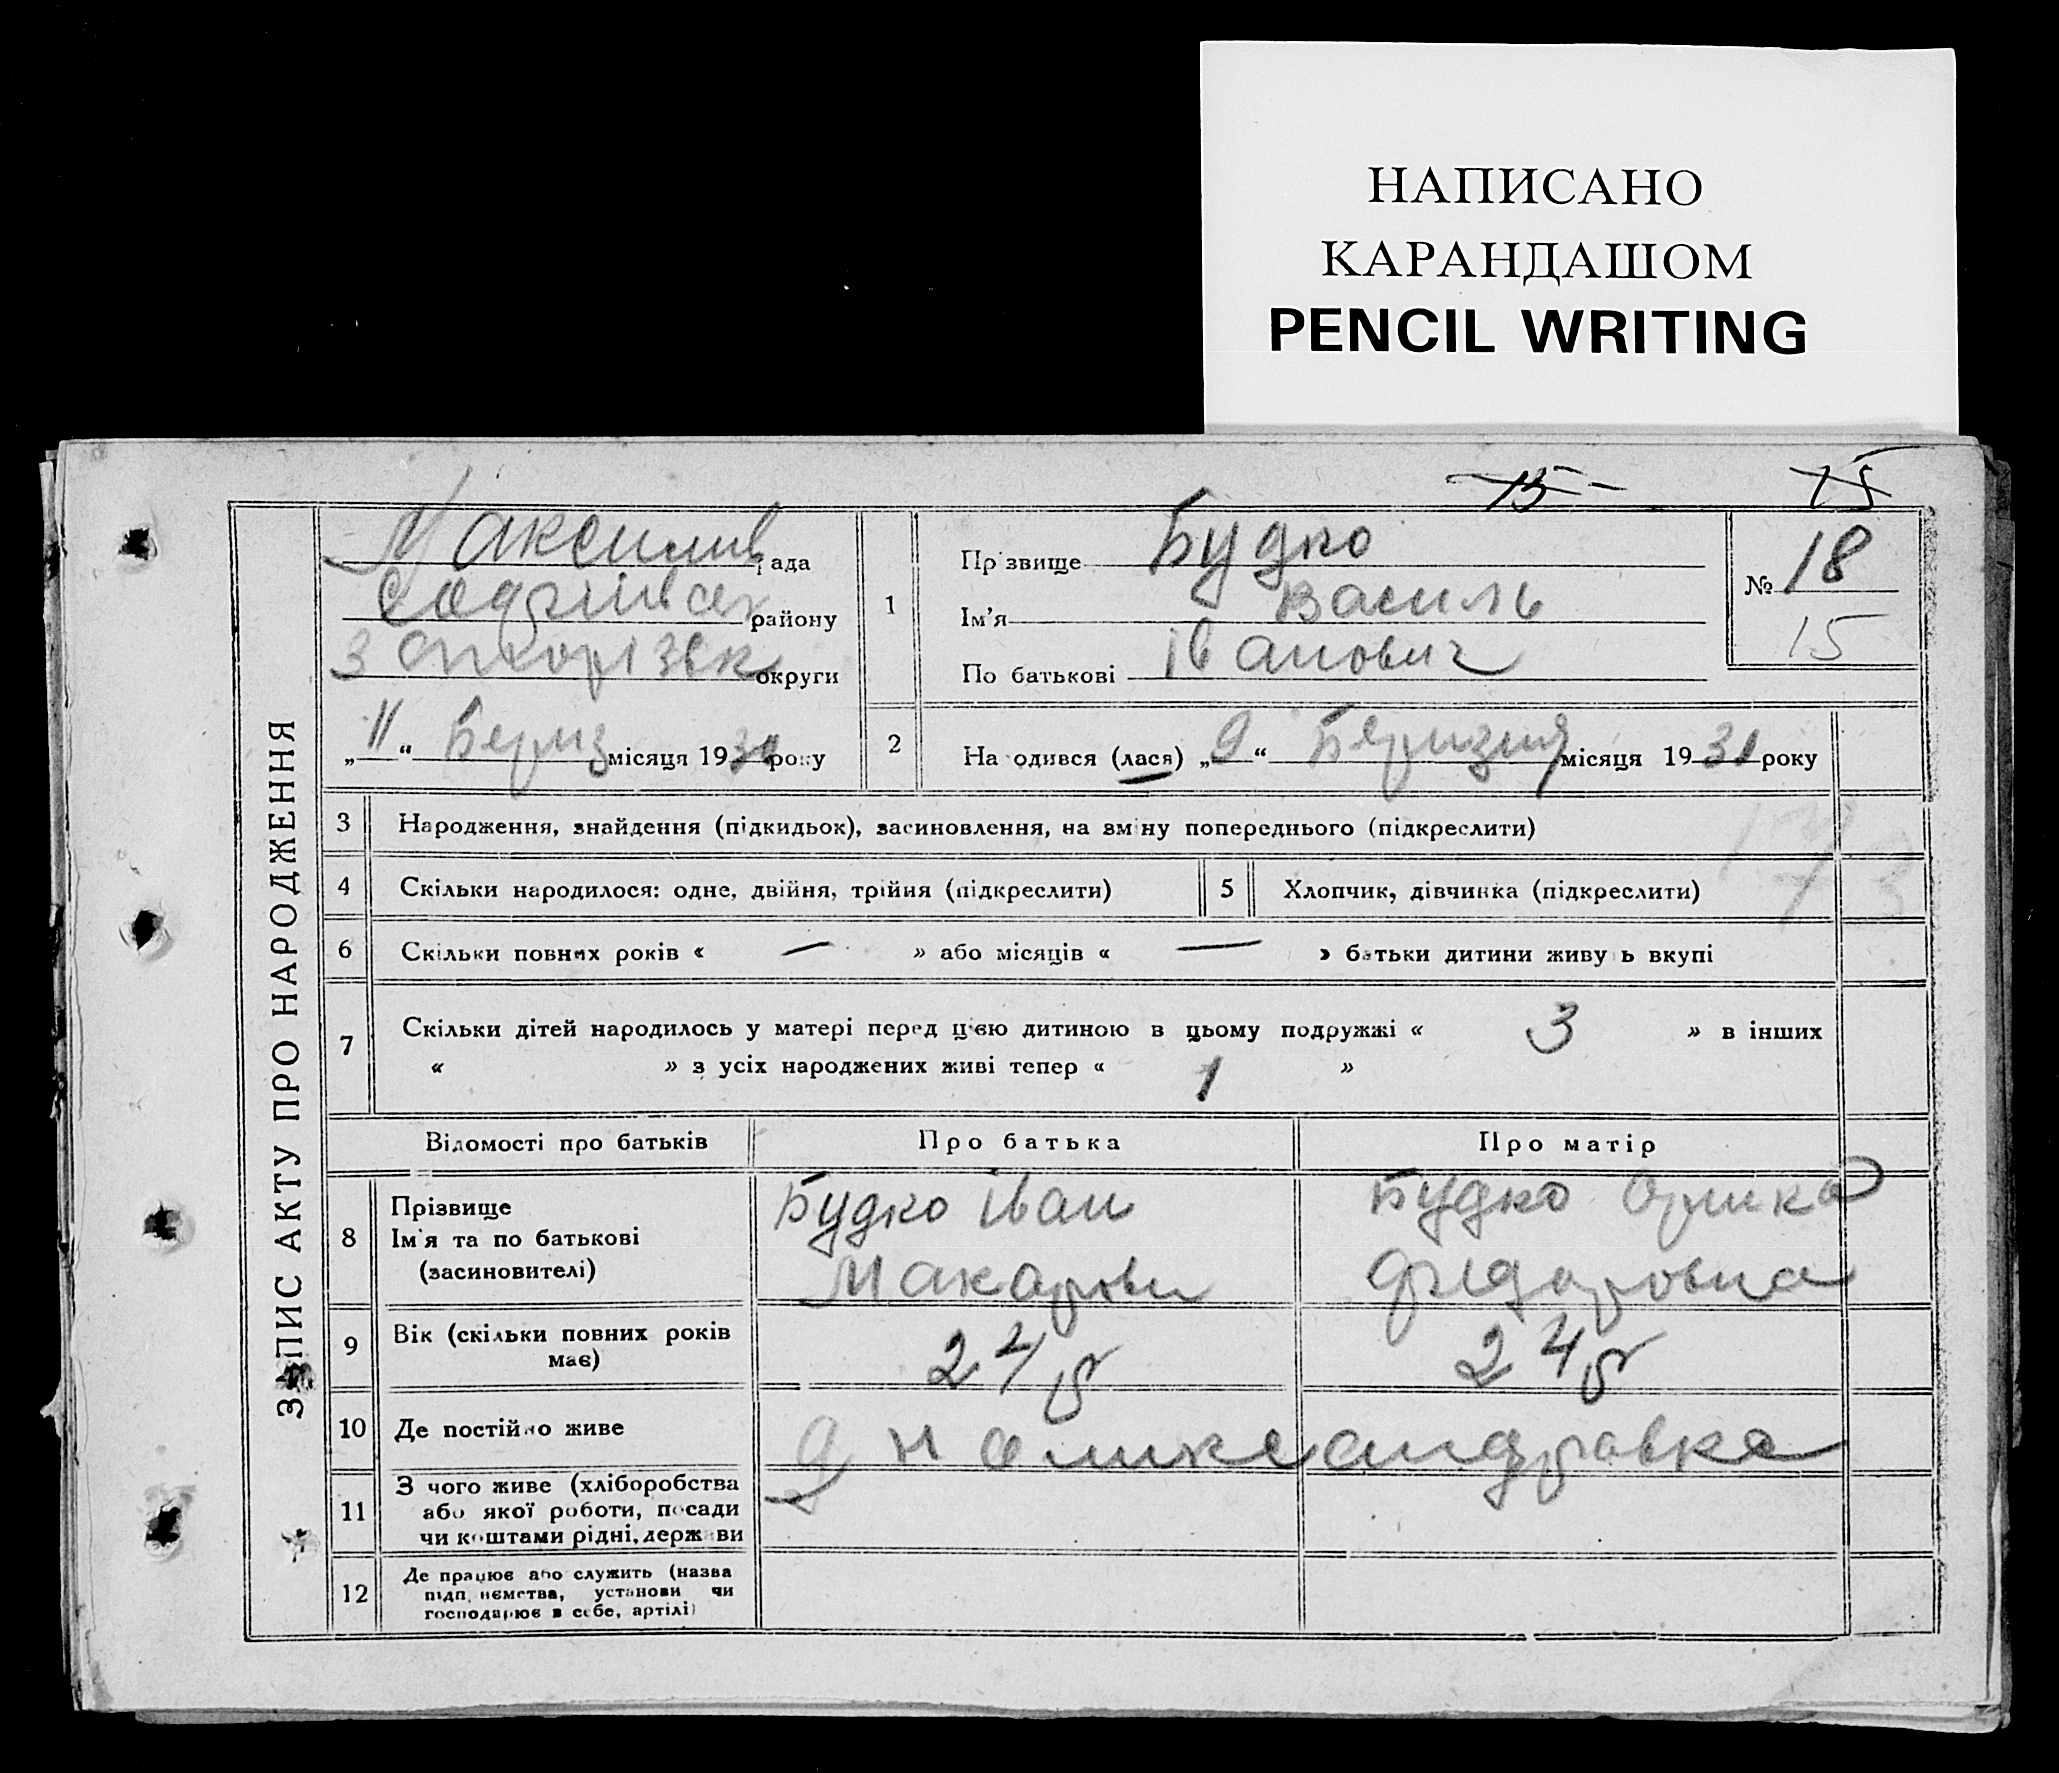 НАПИСАНО
КАРАНДАШОМ
PENCIL WRITING
15
15
ЗАПИС АКТУ ПРО НАРОДЖЕННЯ
рада
району
округи
„ 11 “ місяця 1930 року
1
Прізвище Будко
Ім'я Василь
По батькові Іванович
№ 18
15
2
Народився (лася) „ 9 “ місяця 1930 року
3 Народження, знайдення (підкидьок), засиновлення, на зміну попереднього (підкреслити)
4 Скільки народилося: одне, двійня, трійня (підкреслити)
5 Хлопчик, дівчинка (підкреслити)
6 Скільки повних років « — » або місяців « — » батьки дитини живуть вкупі
7 Скільки дітей народилось у матері перед цією дитиною в цьому подружжі « 3 » в інших
« » з усіх народжених живі тепер « 1 »
Відомості про батьків Про батька Про матір
8 Прізвище
Ім'я та по батькові
(засиновителі)
Будко Іван
Макарови
Будко
9 Вік (скільки повних років
має)
24
24
10 Де постійно живе
11 З чого живе (хліборобства
або якої роботи, посади
чи коштами рідні, держави
12 Де працює або служить (назва
підприємства, установи чи
господарює в себе, артілі)